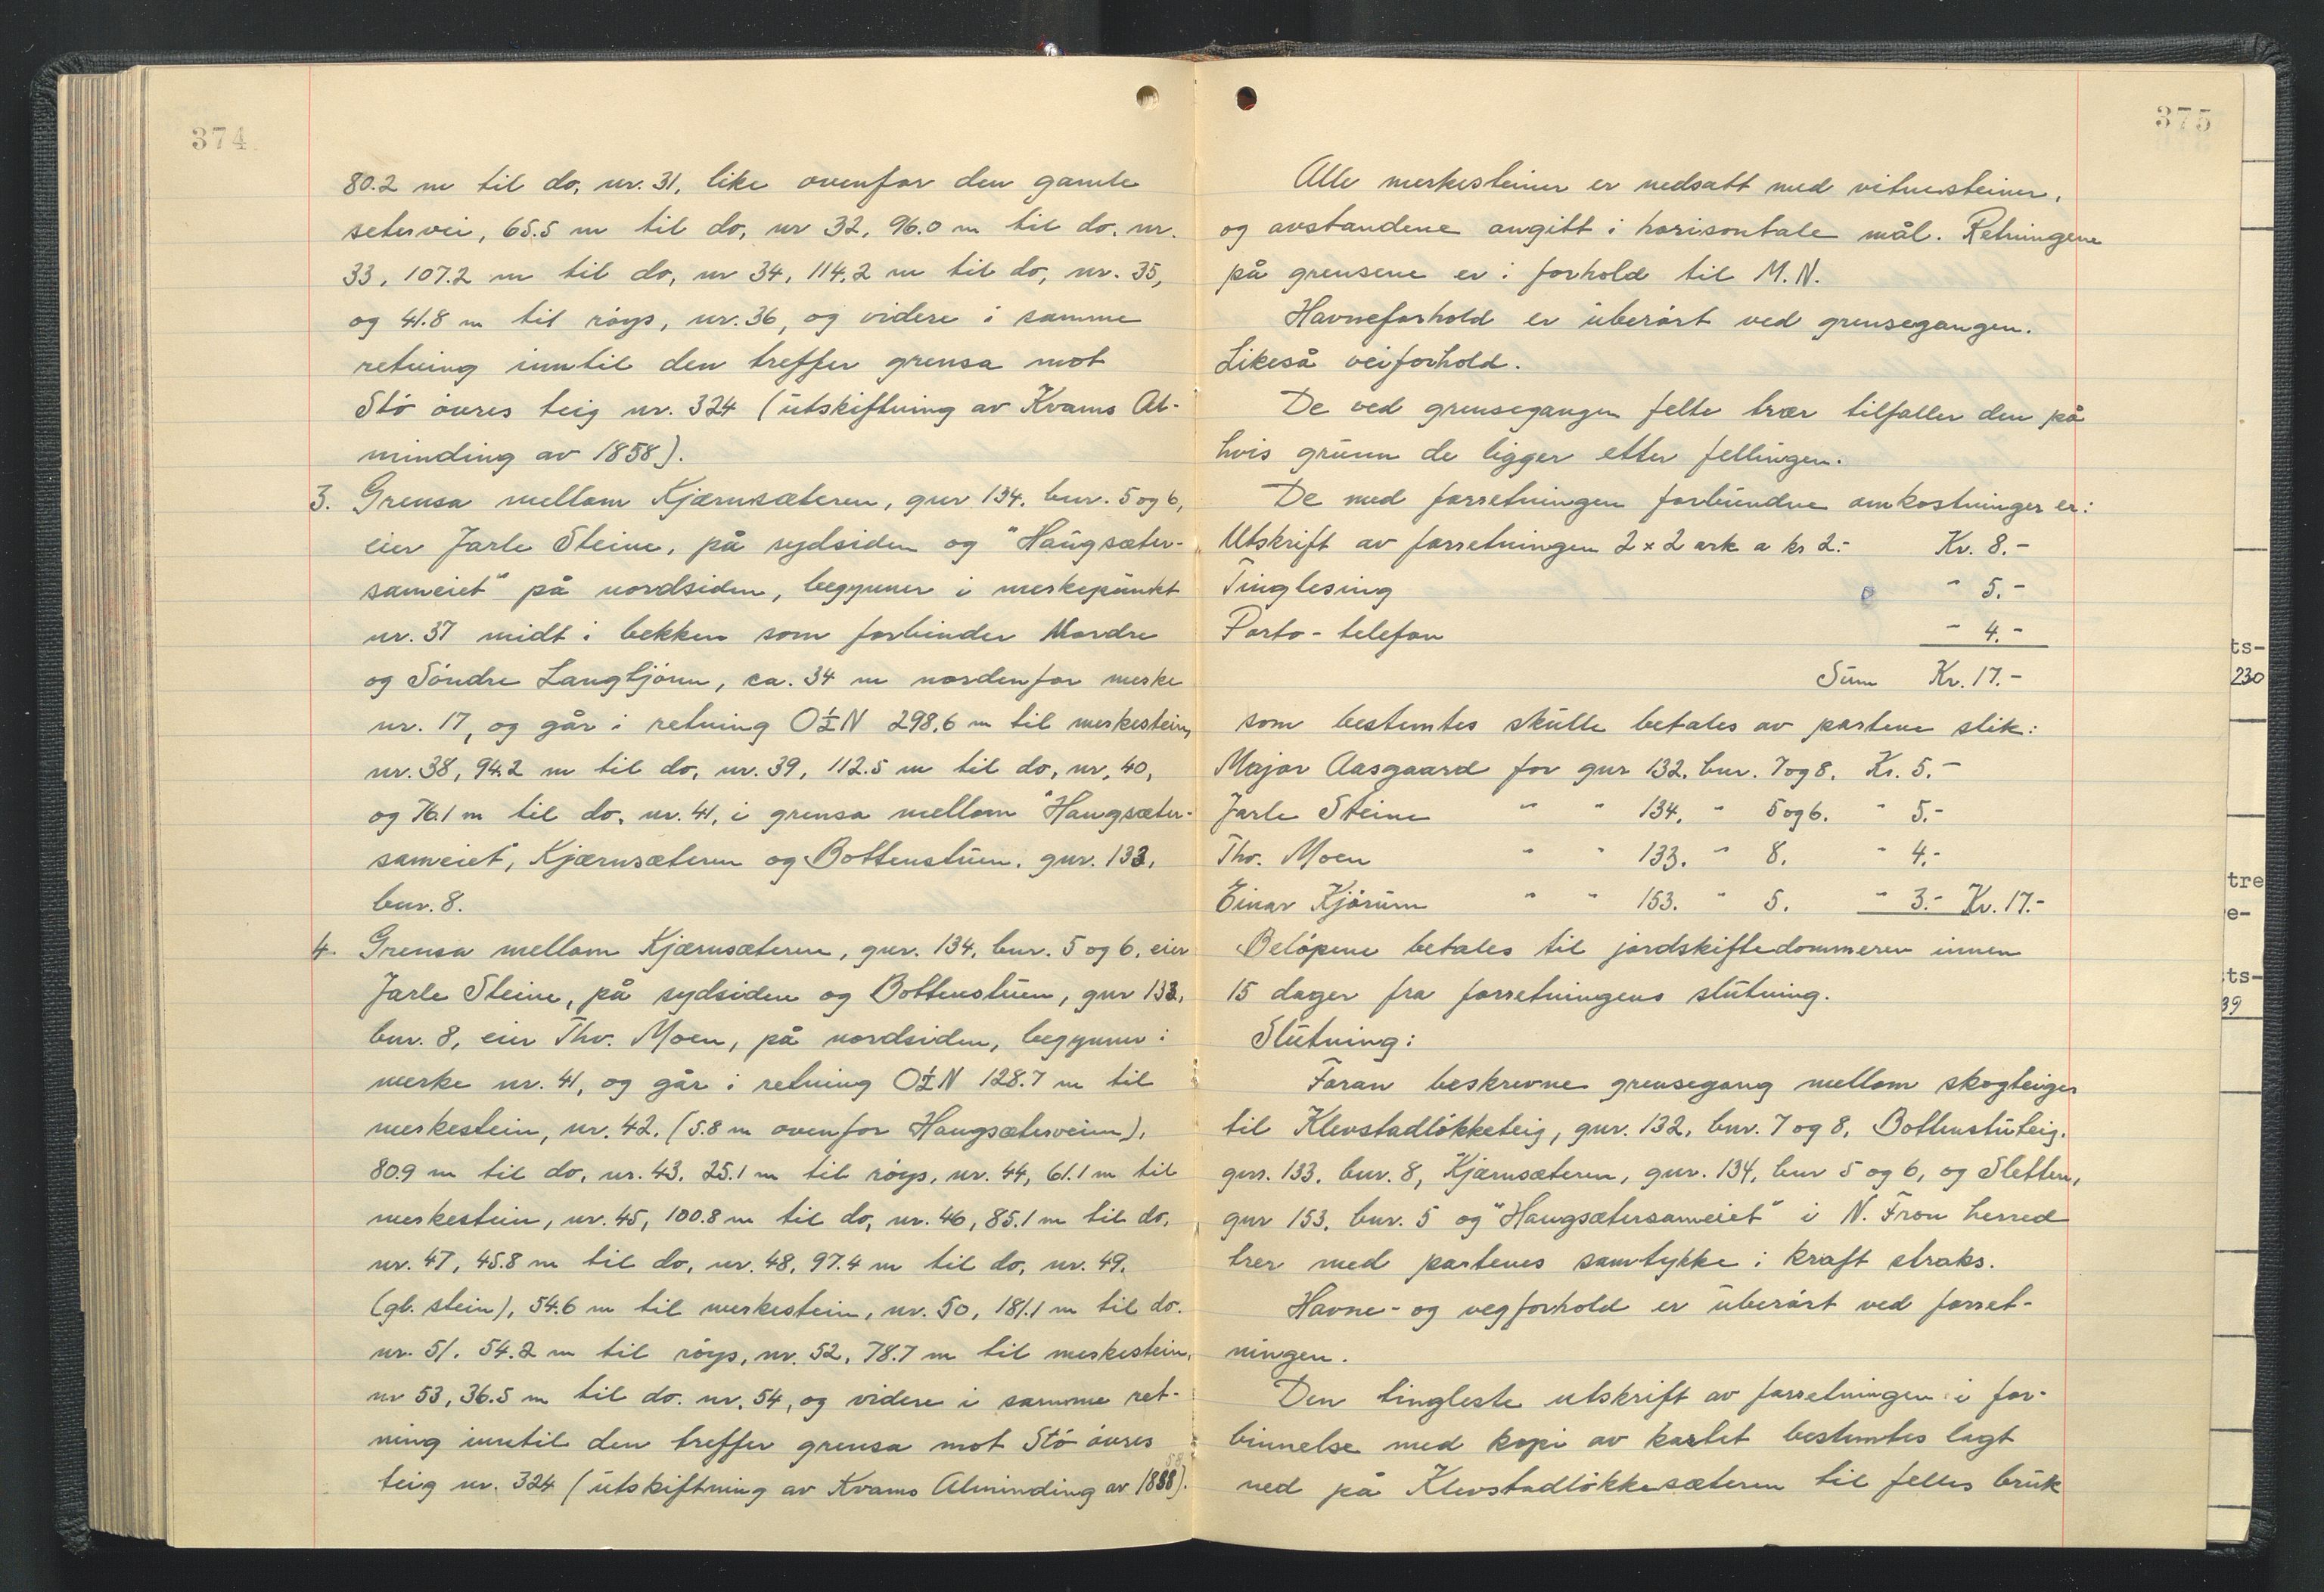 374
80.2 m til do, nr. 31, like ovenfor den gamle
setervei, 65.5 m til do, nr 32, 96.0 m til do. nr.
33, 107.2 m til do, nr 34, 114.2 m til do, nr. 35,
og 41.8 m til röys, nr. 36, og videre i samme
retning inntil den treffer grensa mot
Stö övres teig nr. 324 (utskiftning av Kvams Al-
minding av 1858).
3. Grensa mellom Kjærnsæteren, gnr 134, bnr. 5 og 6,
eier Jarle Steine, på sydsiden og "Haugsæter-
sameiet" på nordsiden, begynner i merkepunkt
nr. 37 midt i bekken som forbinder Nordre
og Söndre Langtjönn, ca. 34 m nordenfor merke
nr. 17, og går i retning O½N 298.6 m til merkestein,
nr. 38, 94.2 m til do, nr. 39, 112.5 m til do, nr. 40,
og 76.1 m til do, nr. 41, i grensa mellom "Haugsæter-
sameiet", Kjærnsæteren og Bottenstuen, gnr. 133,
bnr. 8.
4. Grensa mellom Kjærnsæteren, gnr. 134, bnr. 5 og 6, eier
Jarle Steine, på sydsiden og Bottenstuen, gnr 133,
bnr. 8, eier Thv. Moen, på nordsiden, begynner i
merke nr. 41, og går i retning O½N 128.7 m til
merkestein, nr. 42. (5.8 m ovenfor Haugsæterveien),
80.9 m til do, nr. 43, 25.1 m til röys, nr. 44, 61.1 m til
merkestein, nr. 45, 100.8 m til do, nr. 46, 85.1 m til do,
nr. 47, 45.8 m til do, nr. 48, 97.4 m til do, nr. 49.
(gl. stein), 54.6 m til merkestein, nr. 50, 181.1 m til do.
nr. 51, 54.2 m til röys, nr. 52, 78.7 m til merkestein,
nr 53, 36.5 m til do. nr. 54, og videre i samme ret-
ning inntil den treffer grensa mot Stö övres
teig nr. 324 (utskiftning av Kvams Alminding av 1858).
375
Alle merkesteiner er nedsatt med vitnesteiner,
og avstandene angitt i horisontale mål. Retningene
på grensene er i forhold til M.N.
Havneforhold er uberört ved grensegangen.
Likeså veiforhold.
De ved grensegangen felte trær tilfaller den på
hvis grunn de ligger etter fellingen.
De med forretningen forbundne omkostninger er:
Utskrift av forretningen 2 x 2 ark a kr 2.- Kr. 8.-
Tinglesing " 5.-
Porto - telefon " 4.-
Sum Kr. 17.-
som bestemtes skulle betales av partene slik:
Major Aasgaard for gnr 132, bnr. 7 og 8. Kr. 5.-
Jarle Steine " " 134, " 5 og 6. " 5.-
Thv. Moen " " 133. " 8. " 4.-
Einar Kjörum " " 153. " 5. " 3.- Kr. 17.-
Belöpene betales til jordskiftedommeren innen
15 dager fra forretningens slutning.
Slutning:
Foran beskrevne grensegang mellom skogteiger
til Klevstadlökketeig, gnr. 132, bnr. 7 og 8, Bottenstuteig.
gnr. 133, bnr. 8, Kjærnsæteren, gnr. 134, bnr 5 og 6, og Sletten,
gnr 153, bnr. 5 og "Haugsætersameiet" i N. Fron herred
trer med partenes samtykke i kraft straks.
Havne- og vegforhold er uberört ved forret-
ningen.
Den tingleste utskrift av forretningen i for-
binnelse med kopi av kartet bestemtes lagt
ned på Klevstadlökkesæteren til felles bruk
ts-
230
tre
e-
ts-
39